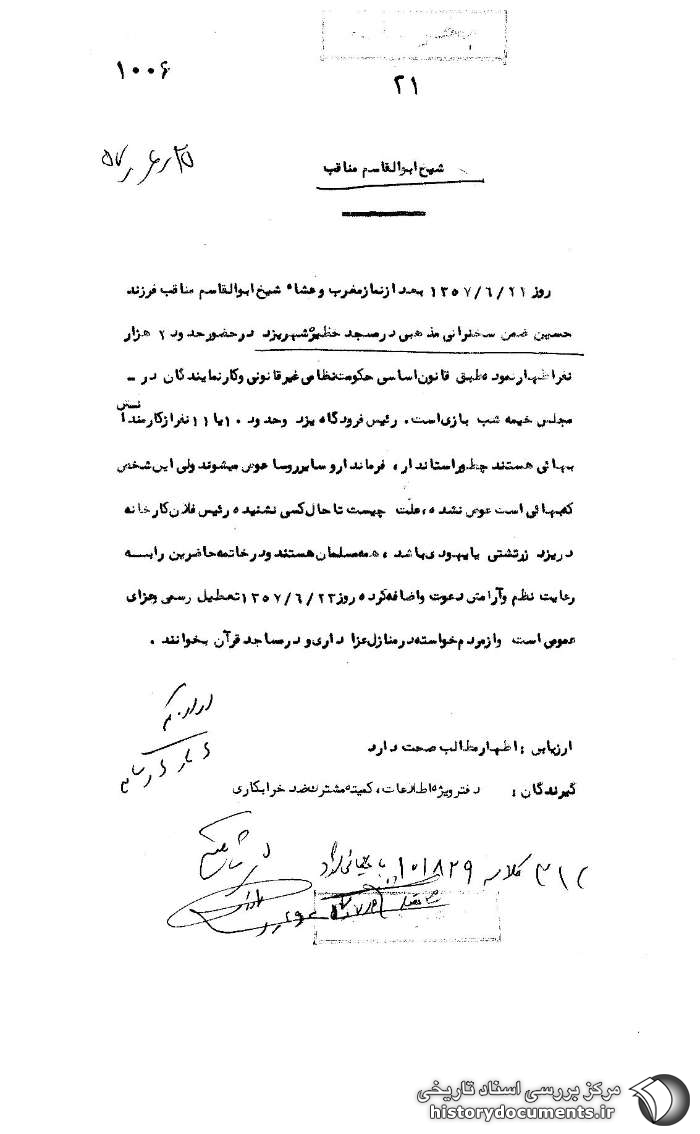 ۱۰۰۶
۲۱
شیخ ابوالقاسم مناقب
روز ۱۳۵۷/۶/۲۱ بعد از نماز مغرب و عشاء شیخ ابوالقاسم مناقب فرزند
حسین ضمن سخنرانی مذهبی در مسجد حظیره شهر یزد در حضور حدود ۲ هزار
نفر اظهار نمود طبق قانون اساسی حکومت نظامی غیرقانونی و کار نمایندگان در -
مجلس خیمه شب بازی است. رئیس فرودگاه یزد وحدود ۱۰ یا ۱۱ نفر از کارمندانش
بهائی هستند چطور استاندار، فرماندار و سایر روسا عوض میشوند ولی این شخص
که بهائی است عوض نشده، علت چیست تا حال کسی نشنیده رئیس فلان کارخانه
در یزد زرتشتی یا یهودی باشد، همه مسلمان هستند و در خاتمه حاضرین را به
رعایت نظم و آرامش دعوت و اضافه کرده روز ۱۳۵۷/۶/۲۳ تعطیل رسمی و عزای
عمومی است و از مردم خواسته در منازل عزاداری و در مساجد قرآن بخوانند.
ارزیابی: اظهار مطالب صحت دارد
گیرندگان: دفتر ویژه اطلاعات، کمیته مشترک ضد خرابکاری
۳۱۲ کلاسه ۱۰۱۸۲۹
مرکز بررسی اسناد تاریخی
historydocuments.ir